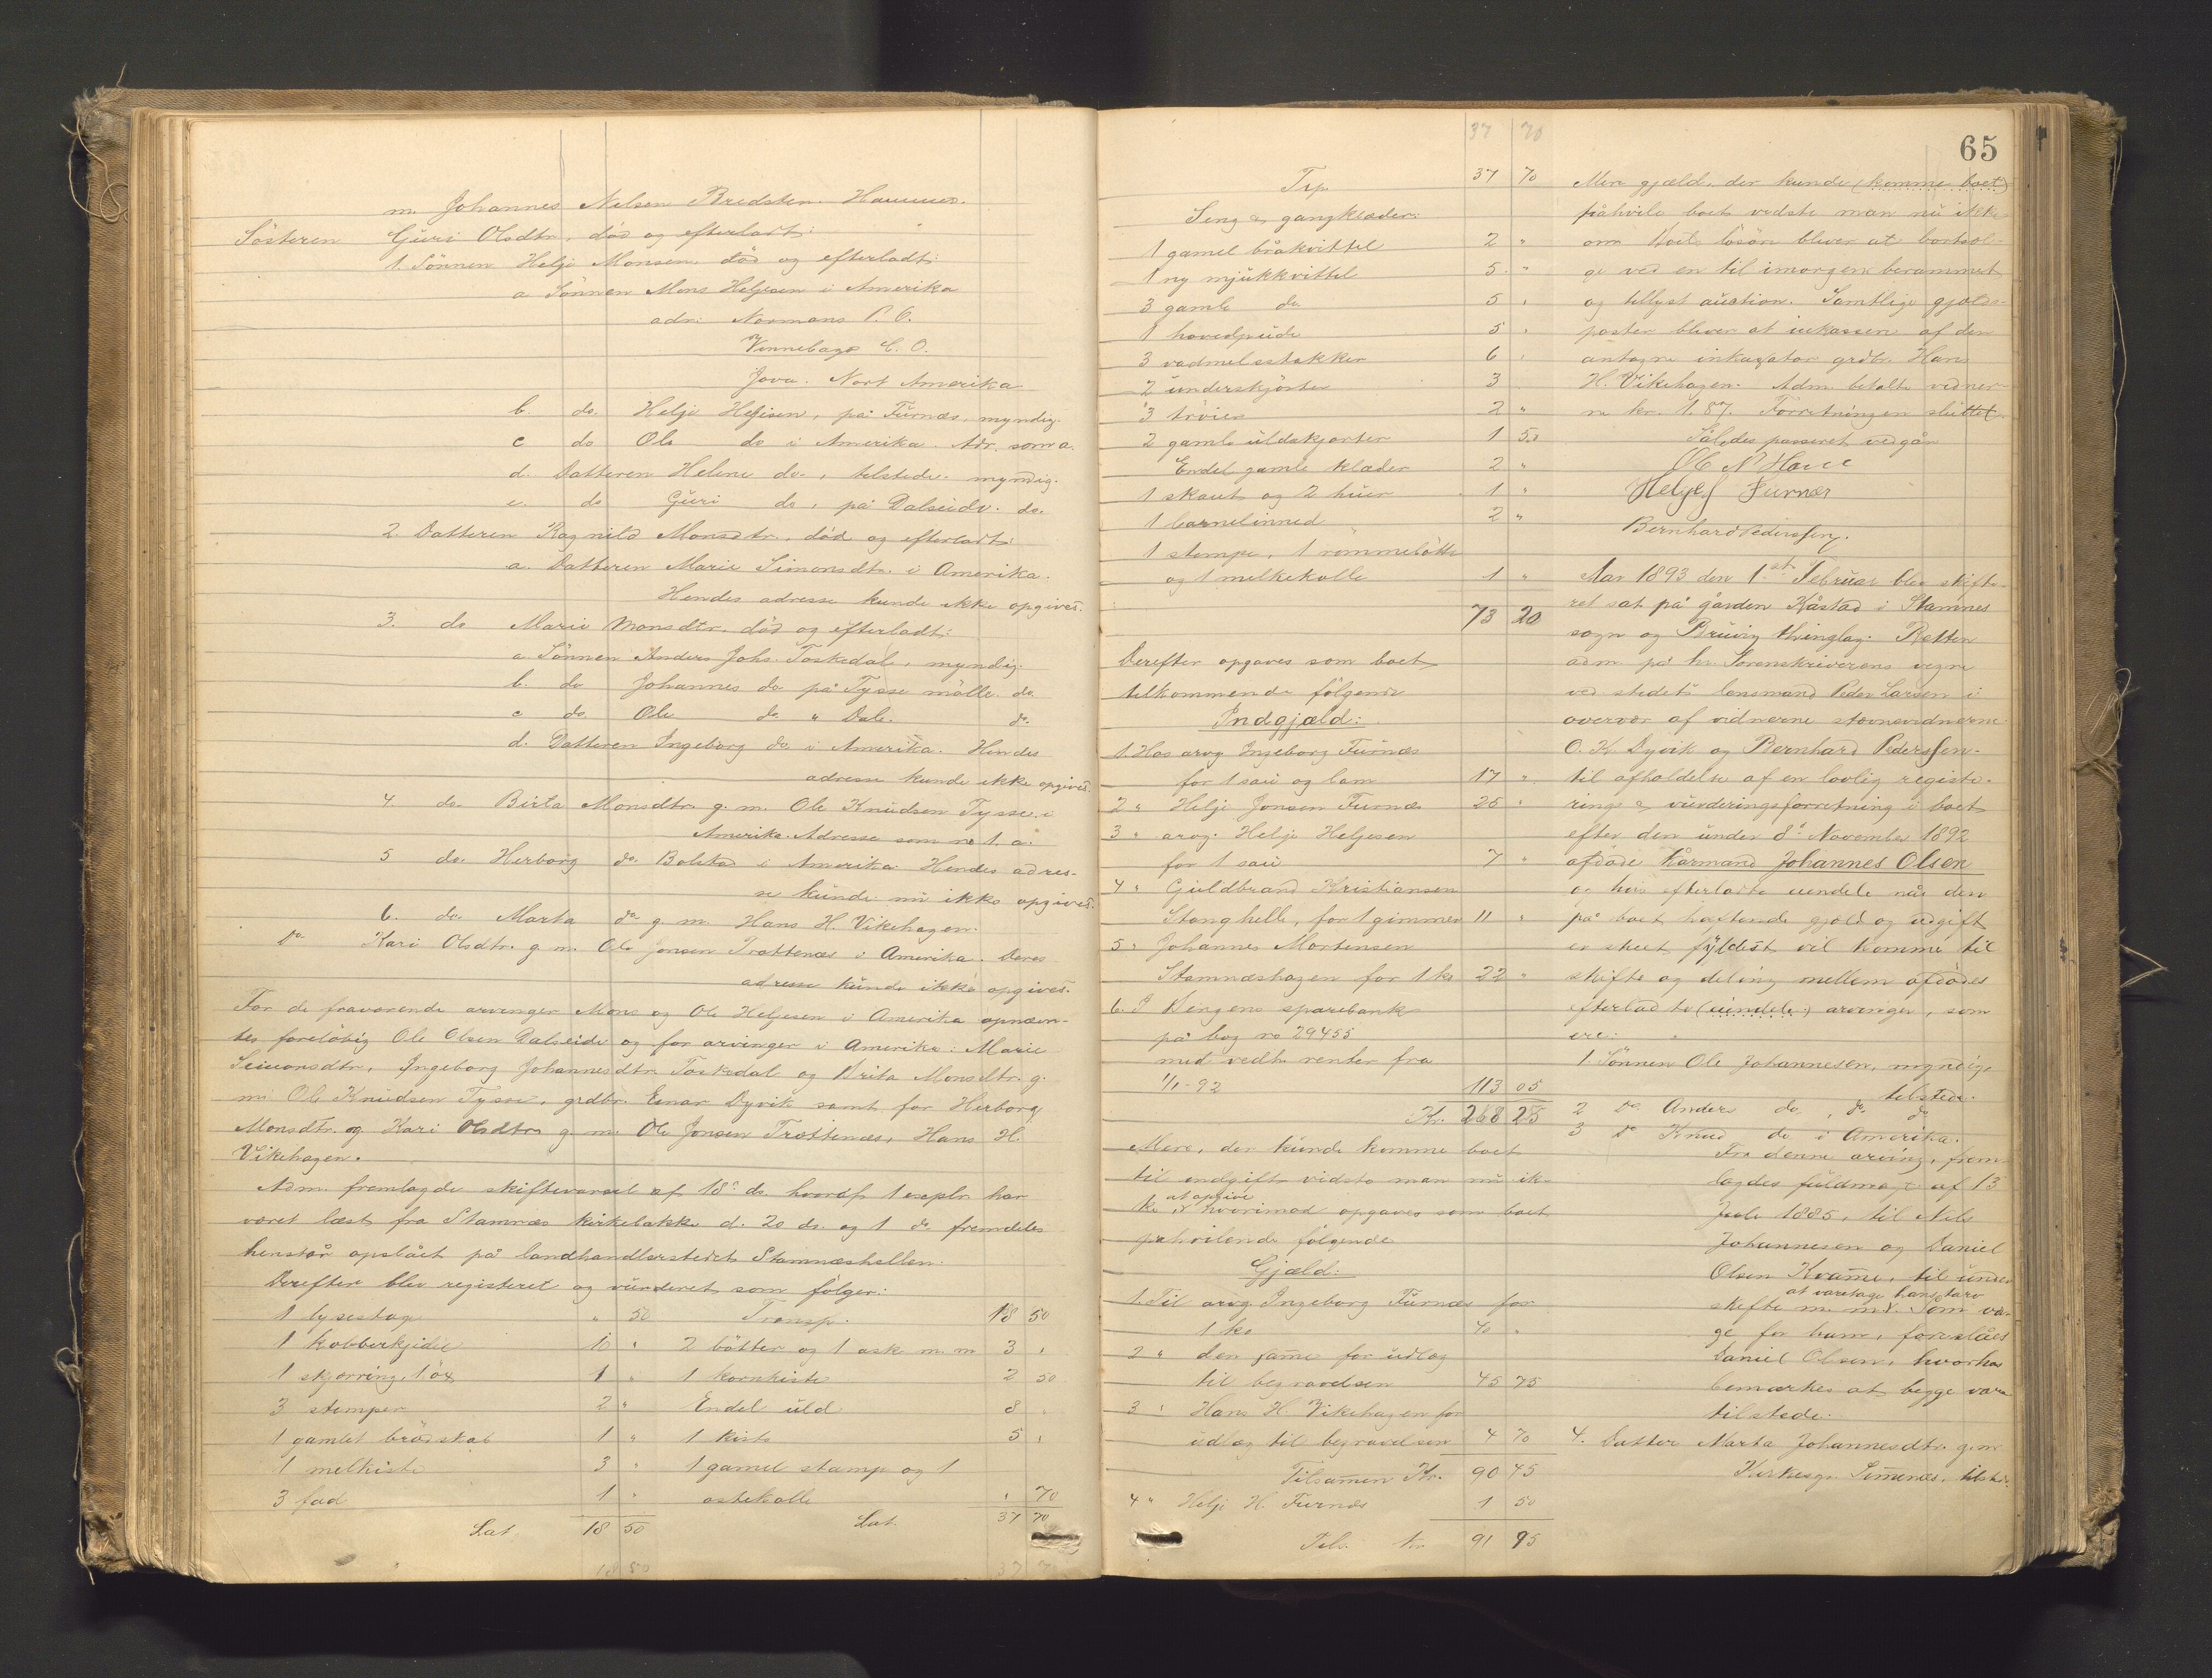 m. Johannes Nelsen Bredsten. Hammer.
Søsteren Guri Olsdtr, død og efterladt:
1. Sønnen Helje Monsen, død og efterladt:
a Sønnen Mons Heljesen i Amerika
adr: Normans P. O.
Vennebago C. O.
Jova. Nort Amerika
b. do. Helje Heljesen, på Furnæs, myndig.
c do Ole do i Amerika. Adr. som a.
d. Datteren Helene do., tilstede. myndig.
e. do Guri do, på Dalseide. do.
2. Datteren Ragnild Monsdtr., død og efterladt:
a. Datteren Marie Simonsdtr. i Amerika.
Hendes adresse kunde ikke opgives.
3. do Marie Monsdtr. død og efterladt:
a. Sønnen Anders Johs. Toskedal, myndig.
b. do Johannes do på Tysse mølle. do.
c do. Ole do. " Dale. do.
d. Datteren Ingeborg do i Amerika. Hendes
adresse kunde ikke opgives.
4. do. Birta Monsdtr. g. m. Ole Knudsen Tysse, i
Amerika. Adresse som no 1. a.
5 do. Herborg do. Bolstad i Amerika. Hendes adres-
se kunde nu ikke opgives.
6. do. Marta do g. m. Hans H. Vikehagen.
Do. Kari Olsdtr. g. m. Ole Jonsen Trættenæs i Amerika. Deres
adresse kunde ikke opgives.
For de fraværende arvinger Mons og Ole Heljesen i Amerika opnævn-
tes foreløbig Ole Olsen Dalseide og for arvinger i Amerika: Marie
Simonsdtr, Ingeborg Johannesdtr. Toskedal og Brita Monsdtr. g.
m. Ole Knudsen Tysse, grdbr. Einar Dyvik samt for Herborg
Monsdtr. og Kari Olsdtr. g m. Ole Jonsen Trættenæs, Hans H.
Vikehagen.
Adm. fremlagde skiftevarsel af 18de ds. hvoraf 1 exeplr. har
været læst fra Stamnæs kirkebakke d. 20 ds. og 1 do fremdeles
henstår opslået på landhandlerstedet Stamnæshellen.
Derefter blev registeret og vurderet som følger:
1 lysestage " 50 Transp. 18 50
1 kobberkjedel 10 " 2 bøtter og 1 ask m. m 3 "
1 skjørring, 1 øx 1 " 1 kornkiste 2 50
3 stemper 2 " Endel uld. 8 "
1 gamlet brødskab 1 " 1 kiste 5 "
1 melkiste 3 " 1 gamel stamp og 1
3 fad 1 " ostekolle " 70
Lat. 18 50 Lat. 37 70
18 50 37 70
37 70
65
Trp. 37 70
Seng & gangklæder:
1 gamel bråkvittel 2 "
1 ny mjukkvittel 5 "
3 gamle do 5 "
1 hovedpude 5 "
3 vadmelsstakker 6 "
2 underskjørter 3
3 trøier 2 "
2 gamle uldskjorter 1 50
Endel gamle klæder 2 "
1 skaut og 2 huer 1 "
1 barnelinned 2 "
1 stampe, 1 rømmebøtte
og 1 melkekolle 1 "
73 20
Derefter opgaves som boet
tilkommende følgende
Indgjæld:
1. Hos arvg Ingeborg Furnæs
for 1 sau og lam 17 "
2 " Helje Jonsen Furnæs 25 "
3 " arvg. Helje Heljesen
for 1 sau 7 "
4 " Guldbrand Kristiansen
Stanghelle, for 1 gimmer 11 "
5 " Johannes Mortensen
Stamnæshagen for 1 ko 22 "
6. I Bergens sparebank
på bog no 29455
med vedh. renter fra
1/1-92 113 05
Kr. 268 25
Mere, der kunde komme boet
til indgift vidste man nu ik-
ke at opgive hvorimod opgaves som boet
påhvilende følgende
Gjæld:
1. Til arvg. Ingeborg Furnæs for
1 ko 40 "
2 " den samme for udlæg
til begravelsen 45 75
3 " Hans H. Vikehagen for
udlæg til begravelsen 4 70
Tilsamen Kr. 90 45
4 " Helje H. Furnæs 1 50
Tils. Kr. 91 95
Mere gjæld, der kunde (komme boet)
påhvile boet vedste man nu ikke
om Boets løsøre bliver at bortsæl-
ge ved en til imorgen berammet
og tillyst auction. Samtlige gjælds-
poster bliver at inkassere af den
antagne inkassator grdbr. Hans
H. Vikehagen. Adm. betalte vidner-
ne kr. 1.87. Forretningen sluttet.
Således passeret vedgår
Ol N Hove
Helje H Furnæs
Bernhard Pederssen.
Aar 1893 den 1ste Februar blev skifte-
ret sat på gården Kåstad i Stamnes
sogn og Bruvig thinglag. Retten
adm. på hr. Sorenskriverens vegne
ved stedets lensmand Peder Larsen i
overvær af vidnerne stævnevidnerne
O. K. Dyvik og Bernhard Pederssen.
til afholdelse af en lovlig registe-
rings & vurderingsforretning i boet
efter den under 8de November 1892
afdøde kårmand Johannes Olsen
og hvis efterladte eiendele når den
på boet haftende gjæld og udgift
er skeet fyldest vil komme til
skifte og deling mellem afdødes
efterladte (eiendele) arvinger, som
ere:
1. Sønnen Ole Johannesen, myndig,
tilstede.
2 Do Anders do, do do
3 Do Knud do i Amerika.
Fra denne arving, frem-
lagdes fuldmagt af 13
Juli 1885, til Nils
Johannesen og Daniel
Olsen Kvamme, til under
skifte m. m. at varetage hans tarv. Som vær-
ge for ham, foreslåes
Daniel Olsen, hvorhos
bemærkes at begge vare
tilstede.
4. Datter Marta Johannesdtr. g. m
Kirkesgr. Simmenæs, tilste-